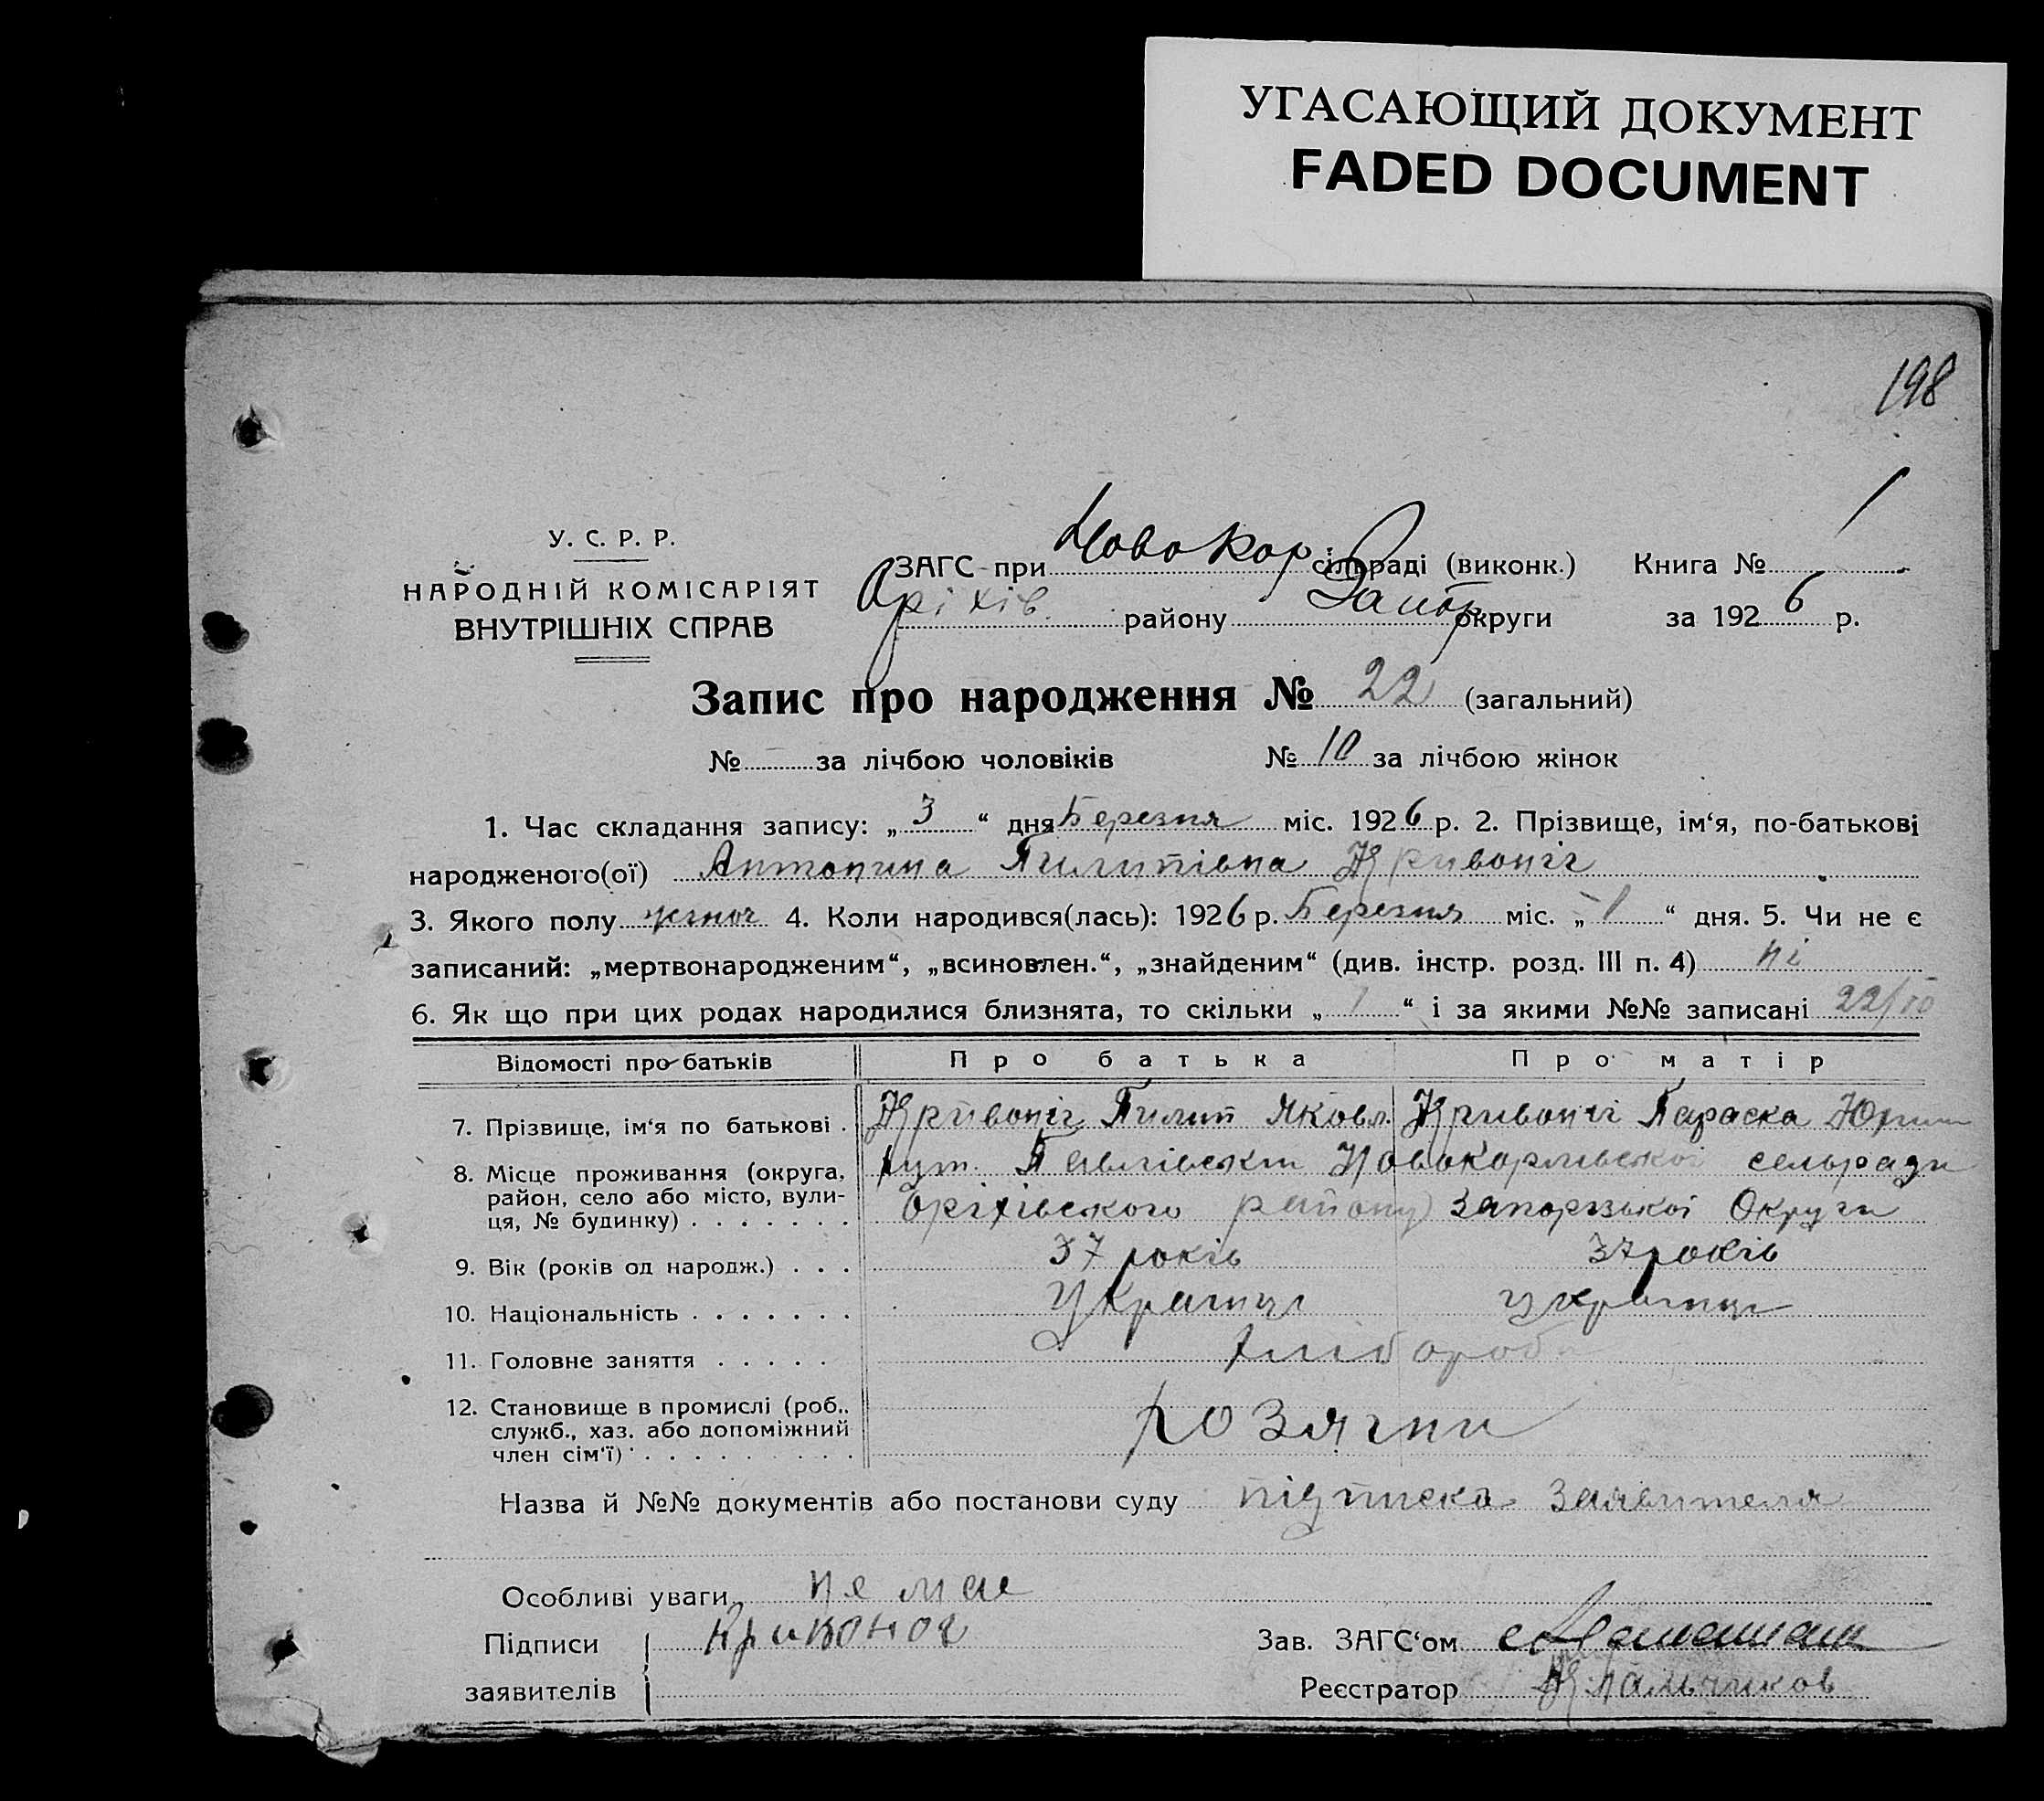 УГАСАЮЩИЙ ДОКУМЕНТ
FADED DOCUMENT
198
У. С. Р. Р.
НАРОДНІЙ КОМІСАРІЯТ
ВНУТРІШНІХ СПРАВ
ЗАГС при Новокар сільраді (виконк.) Книга № 1
Оріхів району Запор округи за 1926 р.
Запис про народження № 22 (загальний)
№ за лічбою чоловіків № 10 за лічбою жінок
1. Час складання запису: „ 3 “ дня Березня міс. 1926 р. 2. Прізвище, ім‘я, по-батькові
народженого(ої) Антонина Пилипівна Кривоніг
3. Якого полу жіноч 4. Коли народився(лась): 1926 р. Березня міс. „ 1 “ дня. 5. Чи не є
записаний: „мертвонародженим“, „всиновлен.“, „знайденим“ (див. інстр. розд. III п. 4) ні
6. Як що при цих родах народилися близнята, то скільки „ 1 “ і за якими №№ записані 22/10
Відомості про батьків Про батька Про матір
7. Прізвище, ім‘я по батькові . Кривоніг Пилип Яковл. Кривоніг Параска
8. Місце проживання (округа, район, село або місто, вулиця, № будинку) . . . . . . . хут. Павлівськи Новокарлівської сельради
Оріхівського району Запорізької Округи
9. Вік (років од народж.) . . . 37 років 37 років
10. Національність . . . . . . . Українці українці
11. Головне заняття . . . . . хлібороб
12. Становище в промислі (роб., служб., хаз. або допоміжний член сім‘ї) . . . . . . . . . хозяіни
Назва й №№ документів або постанови суду підписка заявителя
Особливі уваги не має
Підписи Кривоног Зав. ЗАГС‘ом
заявителів Реєстратор